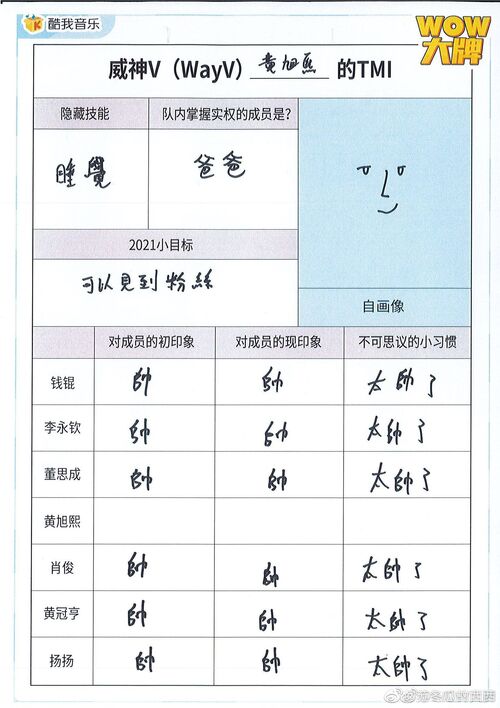 酷我音乐
WOW
大牌
威神V（WayV）黄旭熙 的TMI
隐藏技能
队内掌握实权的成员是?
睡覺
爸爸
2021小目标
可以見到粉絲
自画像
对成员的初印象 对成员的现印象 不可思议的小习惯
钱锟 帥 帥 太帥了
李永钦 帥 帥 太帥了
董思成 帥 帥 太帥了
黄旭熙
肖俊 帥 帥 太帥了
黄冠亨 帥 帥 太帥了
扬扬 帥 帥 太帥了